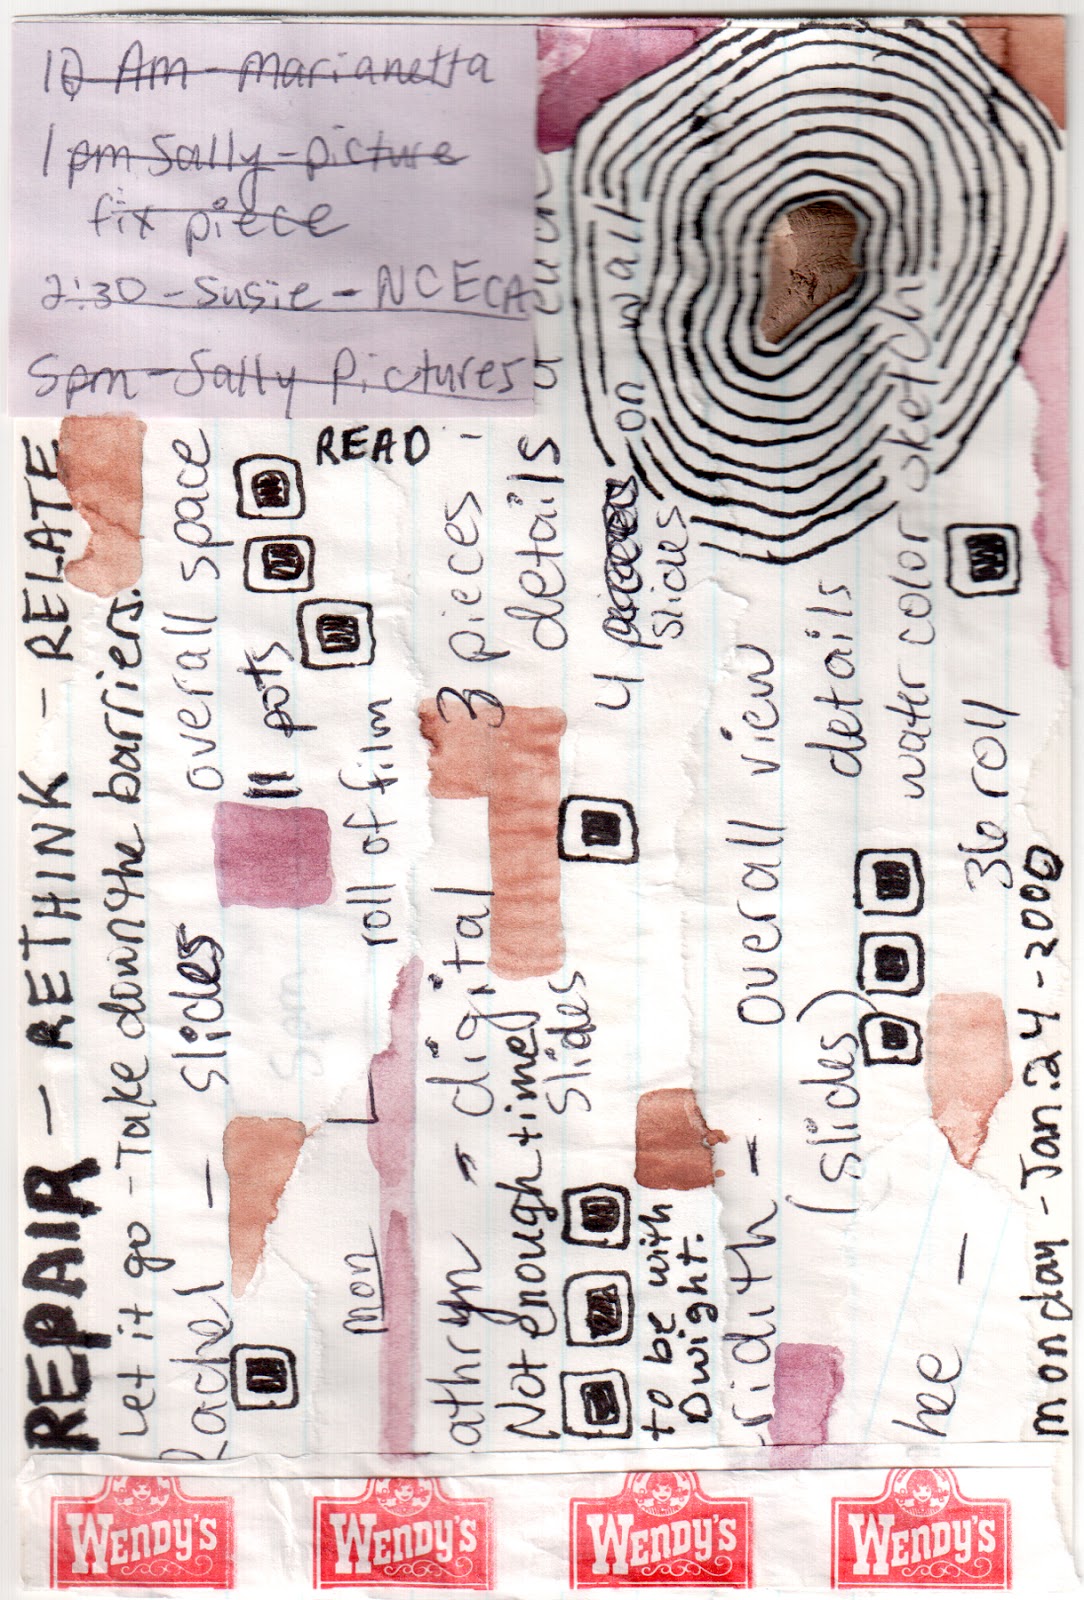 10 Am - Marianetta
1 pm Sally - picture
fix piece
2:30 - Susie - NCECA
5pm - Sally pictures
READ
REPAIR - RETHINK - RELATE
Let it go - Take down the barriers.
Rachel - slides overall space
11 pots
5pm
mon
1 roll of film
athryn - digital 3 pieces -
Not enough time
slides details
to be with
Dwight.
4 pieces on wall
slides
ridith - overall view
(slides) details
water color sketch
hee - 36 roll
monday - Jan. 24 - 2000
WENDY'S
WENDY'S
WENDY'S
WENDY'S